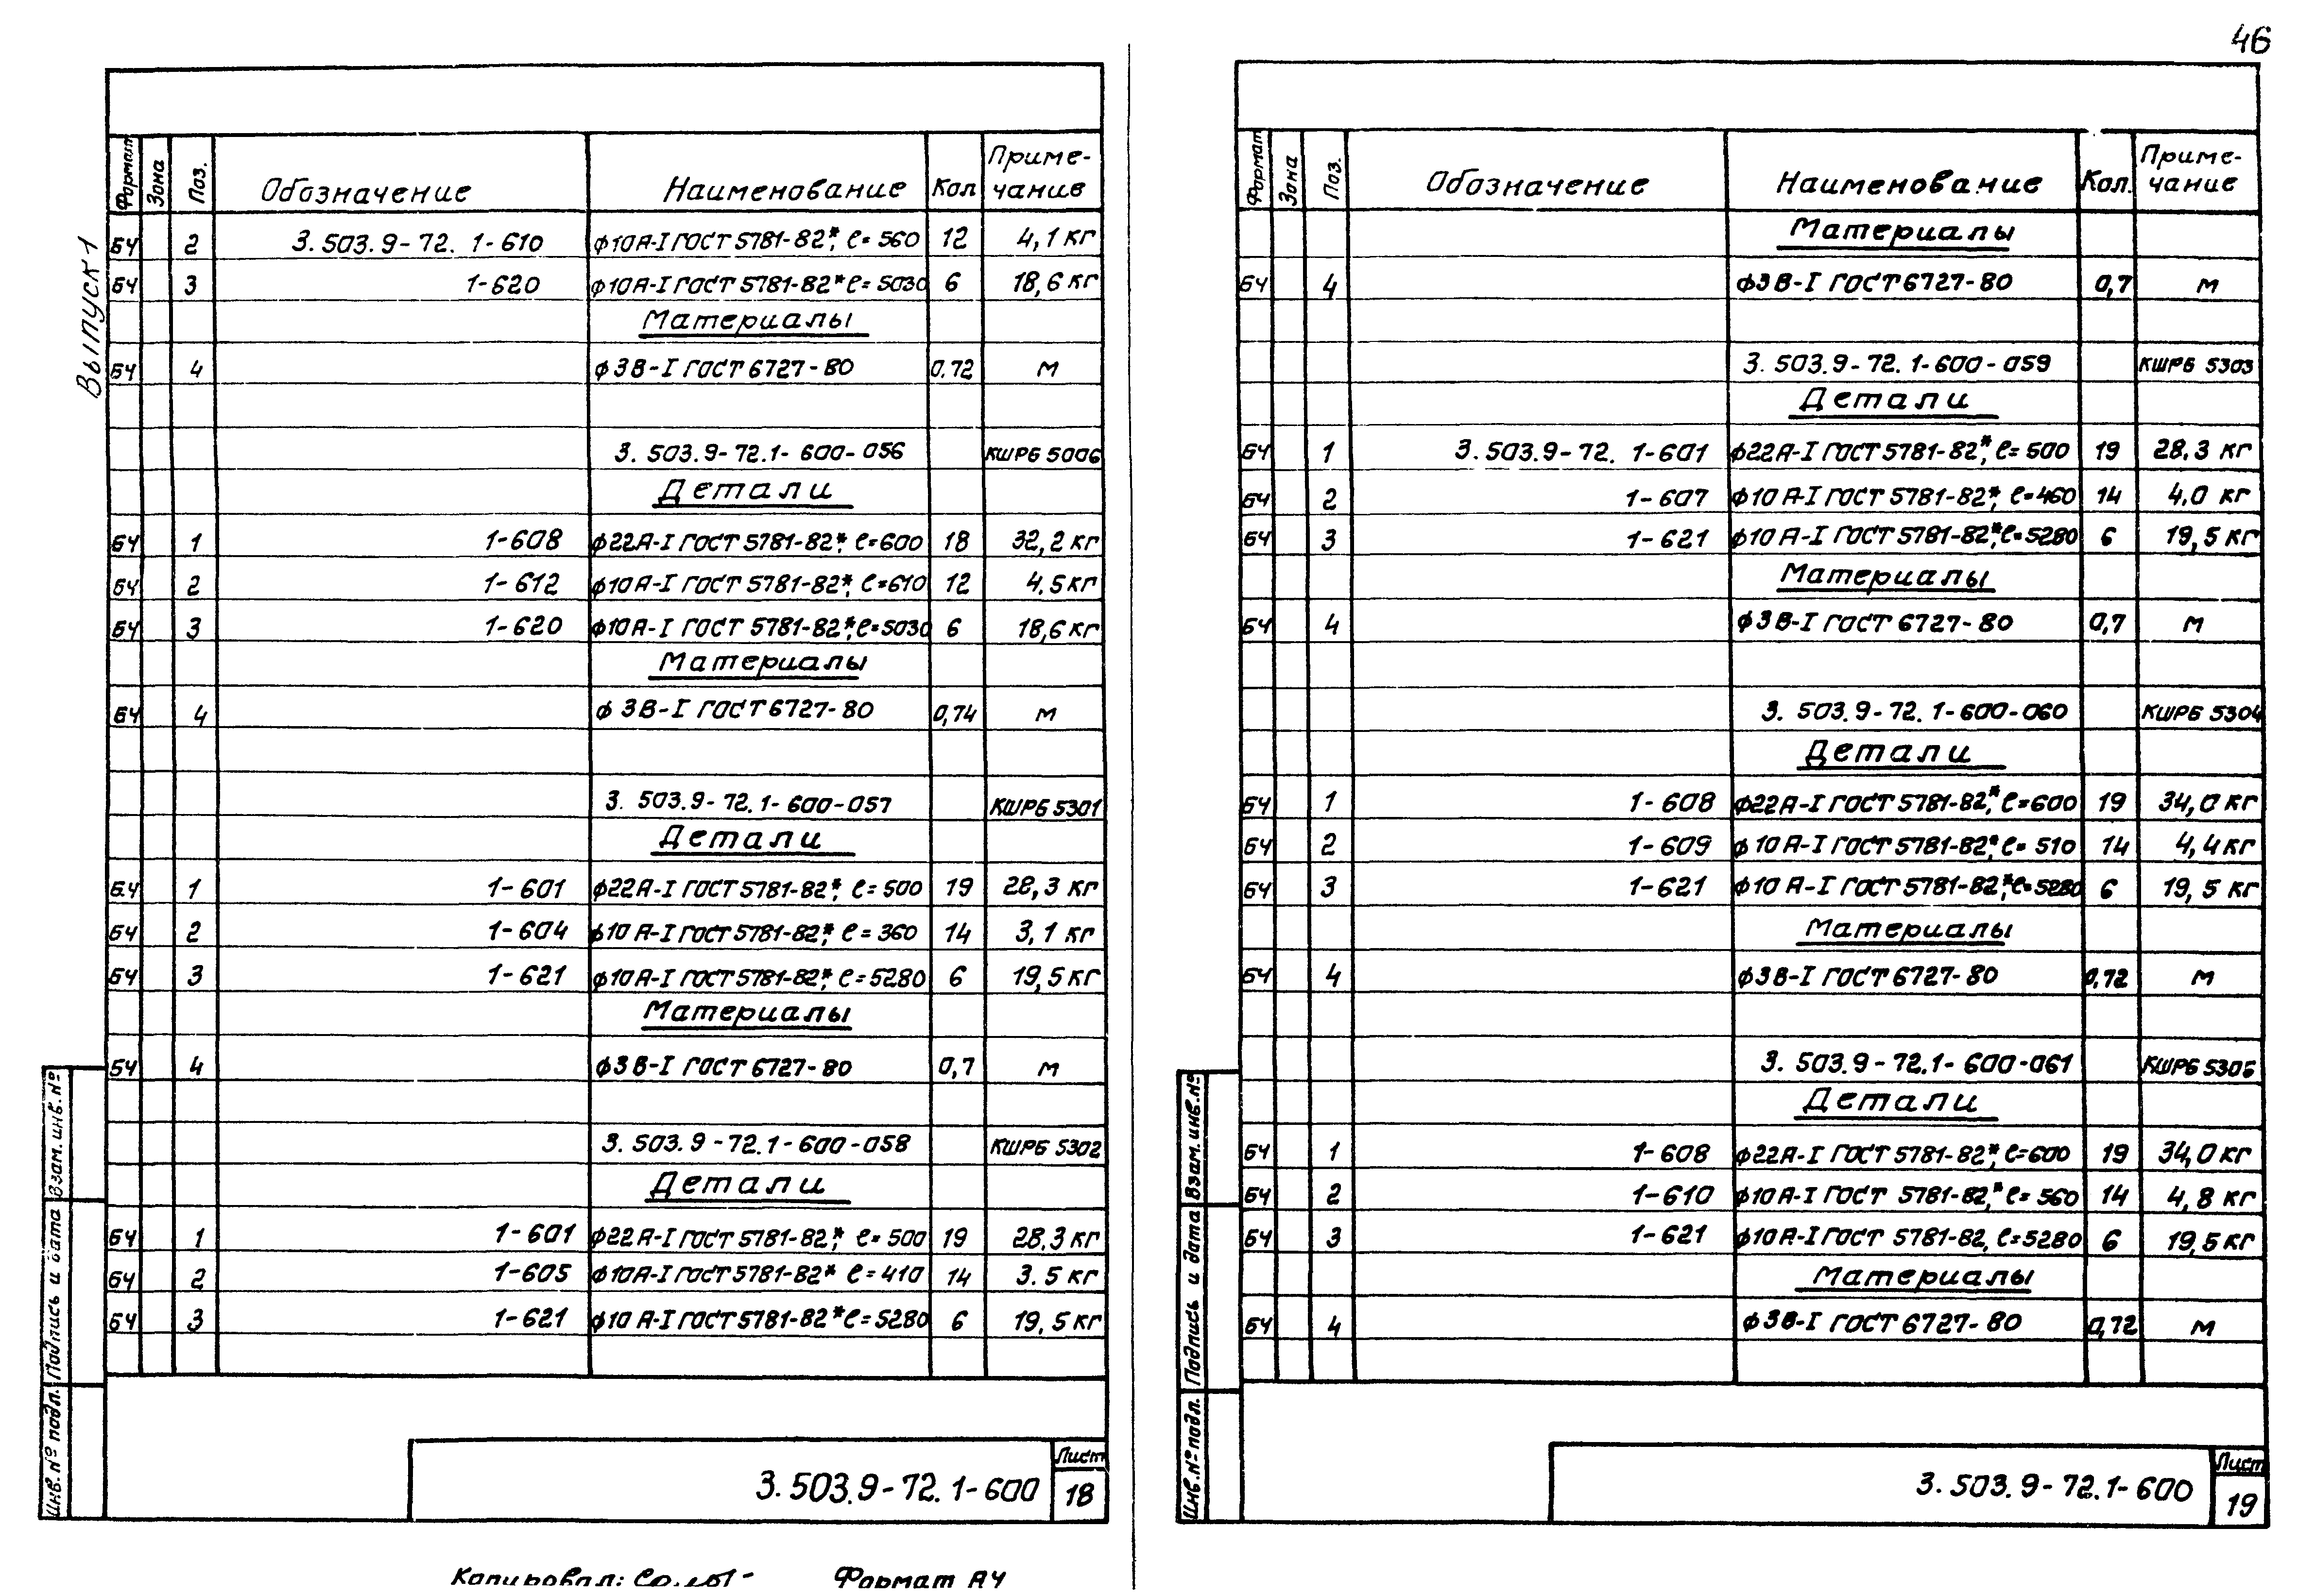 46
Выпуск 1
Формат Зона Поз. Обозначение Наименование Кол Приме-
чание
БЧ 2 3.503.9-72. 1-610 ϕ10А-I ГОСТ 5781-82*, ℓ=560 12 4,1 кг
БЧ 3 1-620 ϕ10А-I ГОСТ 5781-82* ℓ=5030 6 18,6 кг
Материалы
БЧ 4 ϕ3В-I ГОСТ 6727-80 0.72 м
3.503.9-72.1-600-056 КШРБ 5006
Детали
БЧ 1 1-608 ϕ22А-I ГОСТ 5781-82*, ℓ=600 18 32,2 кг
БЧ 2 1-612 ϕ10А-I ГОСТ 5781-82*, ℓ=610 12 4.5 кг
БЧ 3 1-620 ϕ10А-I ГОСТ 5781-82*, ℓ=5030 6 18,6 кг
Материалы
БЧ 4 ϕ3В-I ГОСТ 6727-80 0,74 м
3.503.9-72.1-600-057 КШРБ 5301
Детали
БЧ 1 1-601 ϕ22А-I ГОСТ 5781-82*, ℓ=500 19 28,3 кг
БЧ 2 1-604 ϕ10А-I ГОСТ 5781-82*, ℓ=360 14 3,1 кг
БЧ 3 1-621 ϕ10А-I ГОСТ 5781-82*, ℓ=5280 6 19,5 кг
Материалы
БЧ 4 ϕ3В-I ГОСТ 6727-80 0,7 м
3.503.9-72.1-600-058 КШРБ 5302
Детали
БЧ 1 1-601 ϕ22А-I ГОСТ 5781-82*, ℓ=500 19 28.3 кг
БЧ 2 1-605 ϕ10А-I ГОСТ 5781-82* ℓ=410 14 3.5 кг
БЧ 3 1-621 ϕ10А-I ГОСТ 5781-82* ℓ=5280 6 19,5 кг
Инв.№ подл. Подпись и дата Взам.инв.№
3.503.9-72.1-600
Лист
18
Копировал:
Формат А4
Формат Зона Поз. Обозначение Наименование Кол. Приме-
чание
Материалы
БЧ 4 ϕ3В-I ГОСТ 6727-80 0,7 м
3.503.9-72.1-600-059 КШРБ 5303
Детали
БЧ 1 3.503.9-72. 1-601 ϕ22А-I ГОСТ 5781-82*, ℓ=500 19 28.3 кг
БЧ 2 1-607 ϕ10А-I ГОСТ 5781-82*, ℓ=460 14 4,0 кг
БЧ 3 1-621 ϕ10А-I ГОСТ 5781-82*, ℓ=5280 6 19,5 кг
Материалы
БЧ 4 ϕ3В-I ГОСТ 6727-80 0,7 м
3.503.9-72.1-600-060 КШРБ 5304
Детали
БЧ 1 1-608 ϕ22А-I ГОСТ 5781-82*, ℓ=600 19 34,0 кг
БЧ 2 1-609 ϕ10А-I ГОСТ 5781-82*, ℓ=510 14 4,4 кг
БЧ 3 1-621 ϕ10А-I ГОСТ 5781-82*, ℓ=5280 6 19,5 кг
Материалы
БЧ 4 ϕ3В-I ГОСТ 6727-80 0,72 м
3.503.9-72.1-600-061 КШРБ 5305
Детали
БЧ 1 1-608 ϕ22А-I ГОСТ 5781-82*, ℓ=600 19 34,0 кг
БЧ 2 1-610 ϕ10А-I ГОСТ 5781-82,* ℓ=560 14 4,8 кг
БЧ 3 1-621 ϕ10А-I ГОСТ 5781-82, ℓ=5280 6 19,5 кг
Материалы
БЧ 4 ϕ3В-I ГОСТ 6727-80 0,72 м
Инв.№ подл. Подпись и дата Взам.инв.№
3.503.9-72.1-600
Лист
19